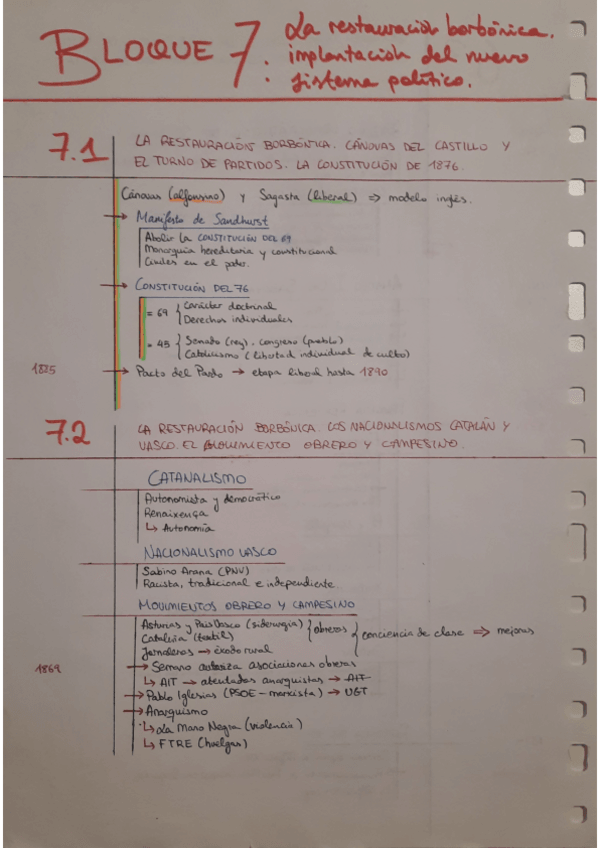 BLOQUE 7: La restauración borbónica.
implantación del nuevo
sistema político.
7.1
LA RESTAURACIÓN BORBÓNICA. CÁNOVAS DEL CASTILLO Y
EL TURNO DE PARTIDOS. LA CONSTITUCIÓN DE 1876.
Cánovas (alfonsino) y Sagasta (liberal) ⇒ modelo inglés.
→ Manifesto de Sandhurst
Abolir la CONSTITUCIÓN DEL 69
Monarquía hereditaria y constitucional
Civiles en el poder.
→ CONSTITUCIÓN DEL 76
= 69 { Carácter doctrinal
Derechos individuales
= 45 { Senado (rey). congreso (pueblo)
Catolicismo (libertad individual de culto)
1885 → Pacto del Pardo → etapa liberal hasta 1890
7.2
LA RESTAURACIÓN BORBÓNICA. LOS NACIONALISMOS CATALÁN Y
VASCO. EL MOVIMIENTO OBRERO Y CAMPESINO.
CATANALISMO
Autonomista y democrático
Renaixença
↳ Autonomía
NACIONALISMO VASCO
Sabino Arana (PNV)
Racista, tradicional e independiente.
MOVIMIENTOS OBRERO Y CAMPESINO
Asturias y País Vasco (siderurgia)
Cataluña (textil) } obreros } conciencia de clase ⇒ mejoras
Jornaleros → éxodo rural
1869 → Serrano autoriza asociaciones obreras
↳ AIT → atentados anarquistas → AIT
→ Pablo Iglesias (PSOE - marxista) → UGT
→ Anarquismo
↳ La Mano Negra (violencia)
↳ FTRE (huelgas)